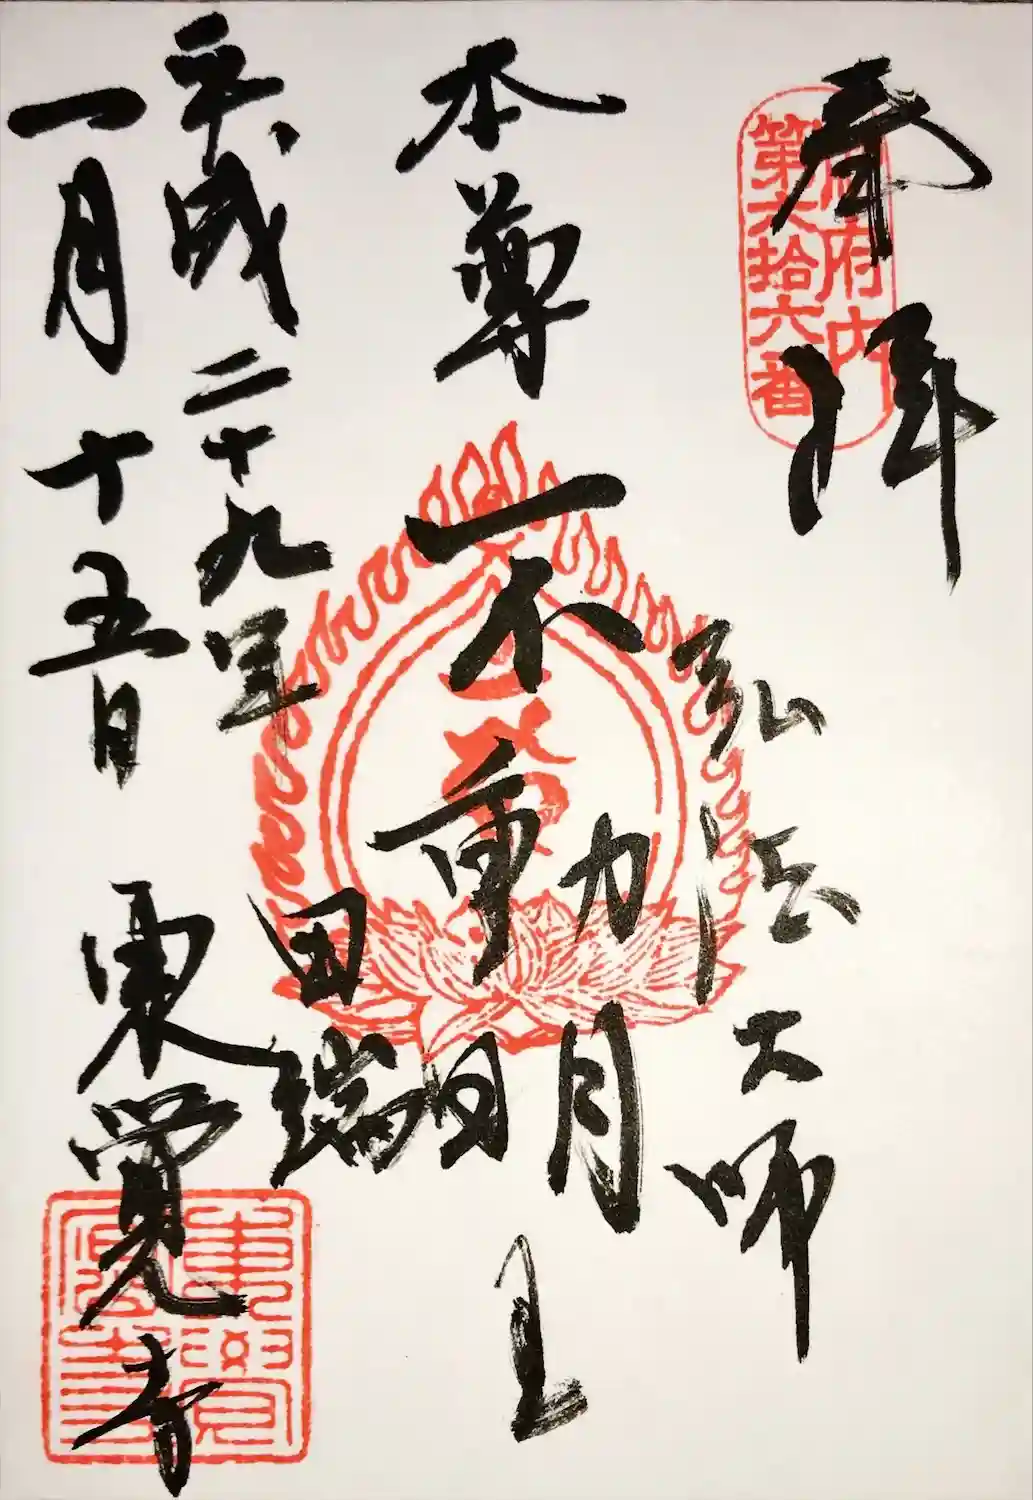 奉拝
府内
第六拾六番
弘法大師
本尊 不動明王
平成二十九年
一月十五日
田端
東覚寺